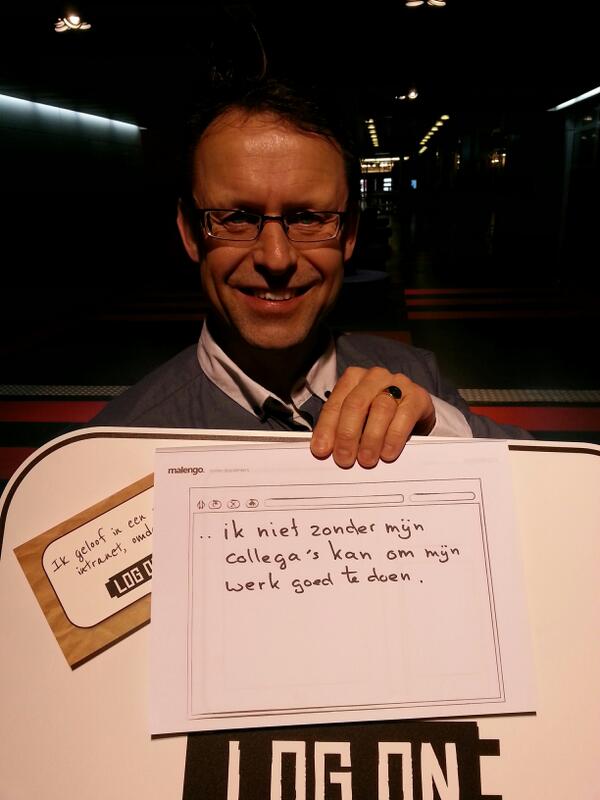 Ik geloof in een
intranet, omda
LOG O
malengo.
.. ik niet zonder mijn
collega's kan om mijn
werk goed te doen.
LOG ON